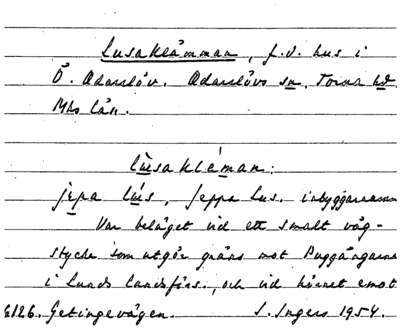 Lusaklämman, f.d. hus i
Ö. Odarslöv. Odarslövs sn, Torna hd
Mhs län.
lùsaklέman:
jεpa lús, Jeppa Lus. inbyggarnamn
Var beläget vid ett smalt väg-
stycke som utgör gräns mot Puggängarna
i Lunds landsförs., och vid hörnet emot
E126. Getingevägen. S. Ingers 1954.